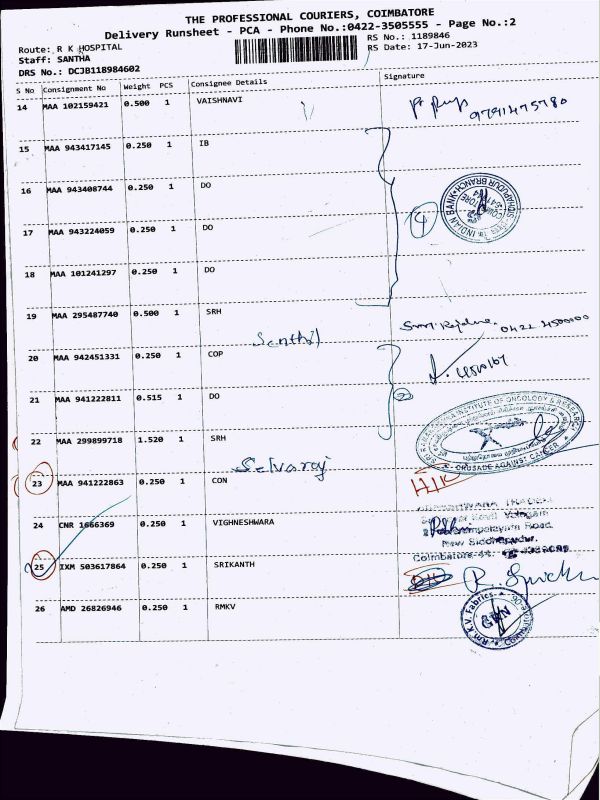 THE PROFESSIONAL COURIERS, COIMBATORE
Delivery Runsheet - PCA - Phone No.:0422-3505555 - Page No.:2
Route: R K HOSPITAL
RS No.: 1189846
Staff: SANTHA
RS Date: 17-Jun-2023
DRS No.: DCJB118984602
S No Consignment No Weight PCS Consignee Details Signature
14 MAA 102159421 0.500 1 VAISHNAVI
9791475780
15 MAA 943417145 0.250 1 IB
16 MAA 943408744 0.250 1 DO
4
INDIAN BANK
17 MAA 943224059 0.250 1 DO
18 MAA 101241297 0.250 1 DO
19 MAA 295487740 0.500 1 SRH
Senthil
0422 4500000
20 MAA 942451331 0.250 1 COP
21 MAA 941222811 0.515 1 DO
2
INSTITUTE OF ONCOLOGY & RESEARCH
CRUSADE AGAINST CANCER
22 MAA 299899718 1.520 1 SRH
Selvaraj
23 MAA 941222863 0.250 1 CON
24 CNR 1666369 0.250 1 VIGHNESHWARA
Road,
New Siddhapudur,
Coimbatore-44.
25 IXM 503617864 0.250 1 SRIKANTH
26 AMD 26826946 0.250 1 RMKV
Rm.K.V. Fabrics